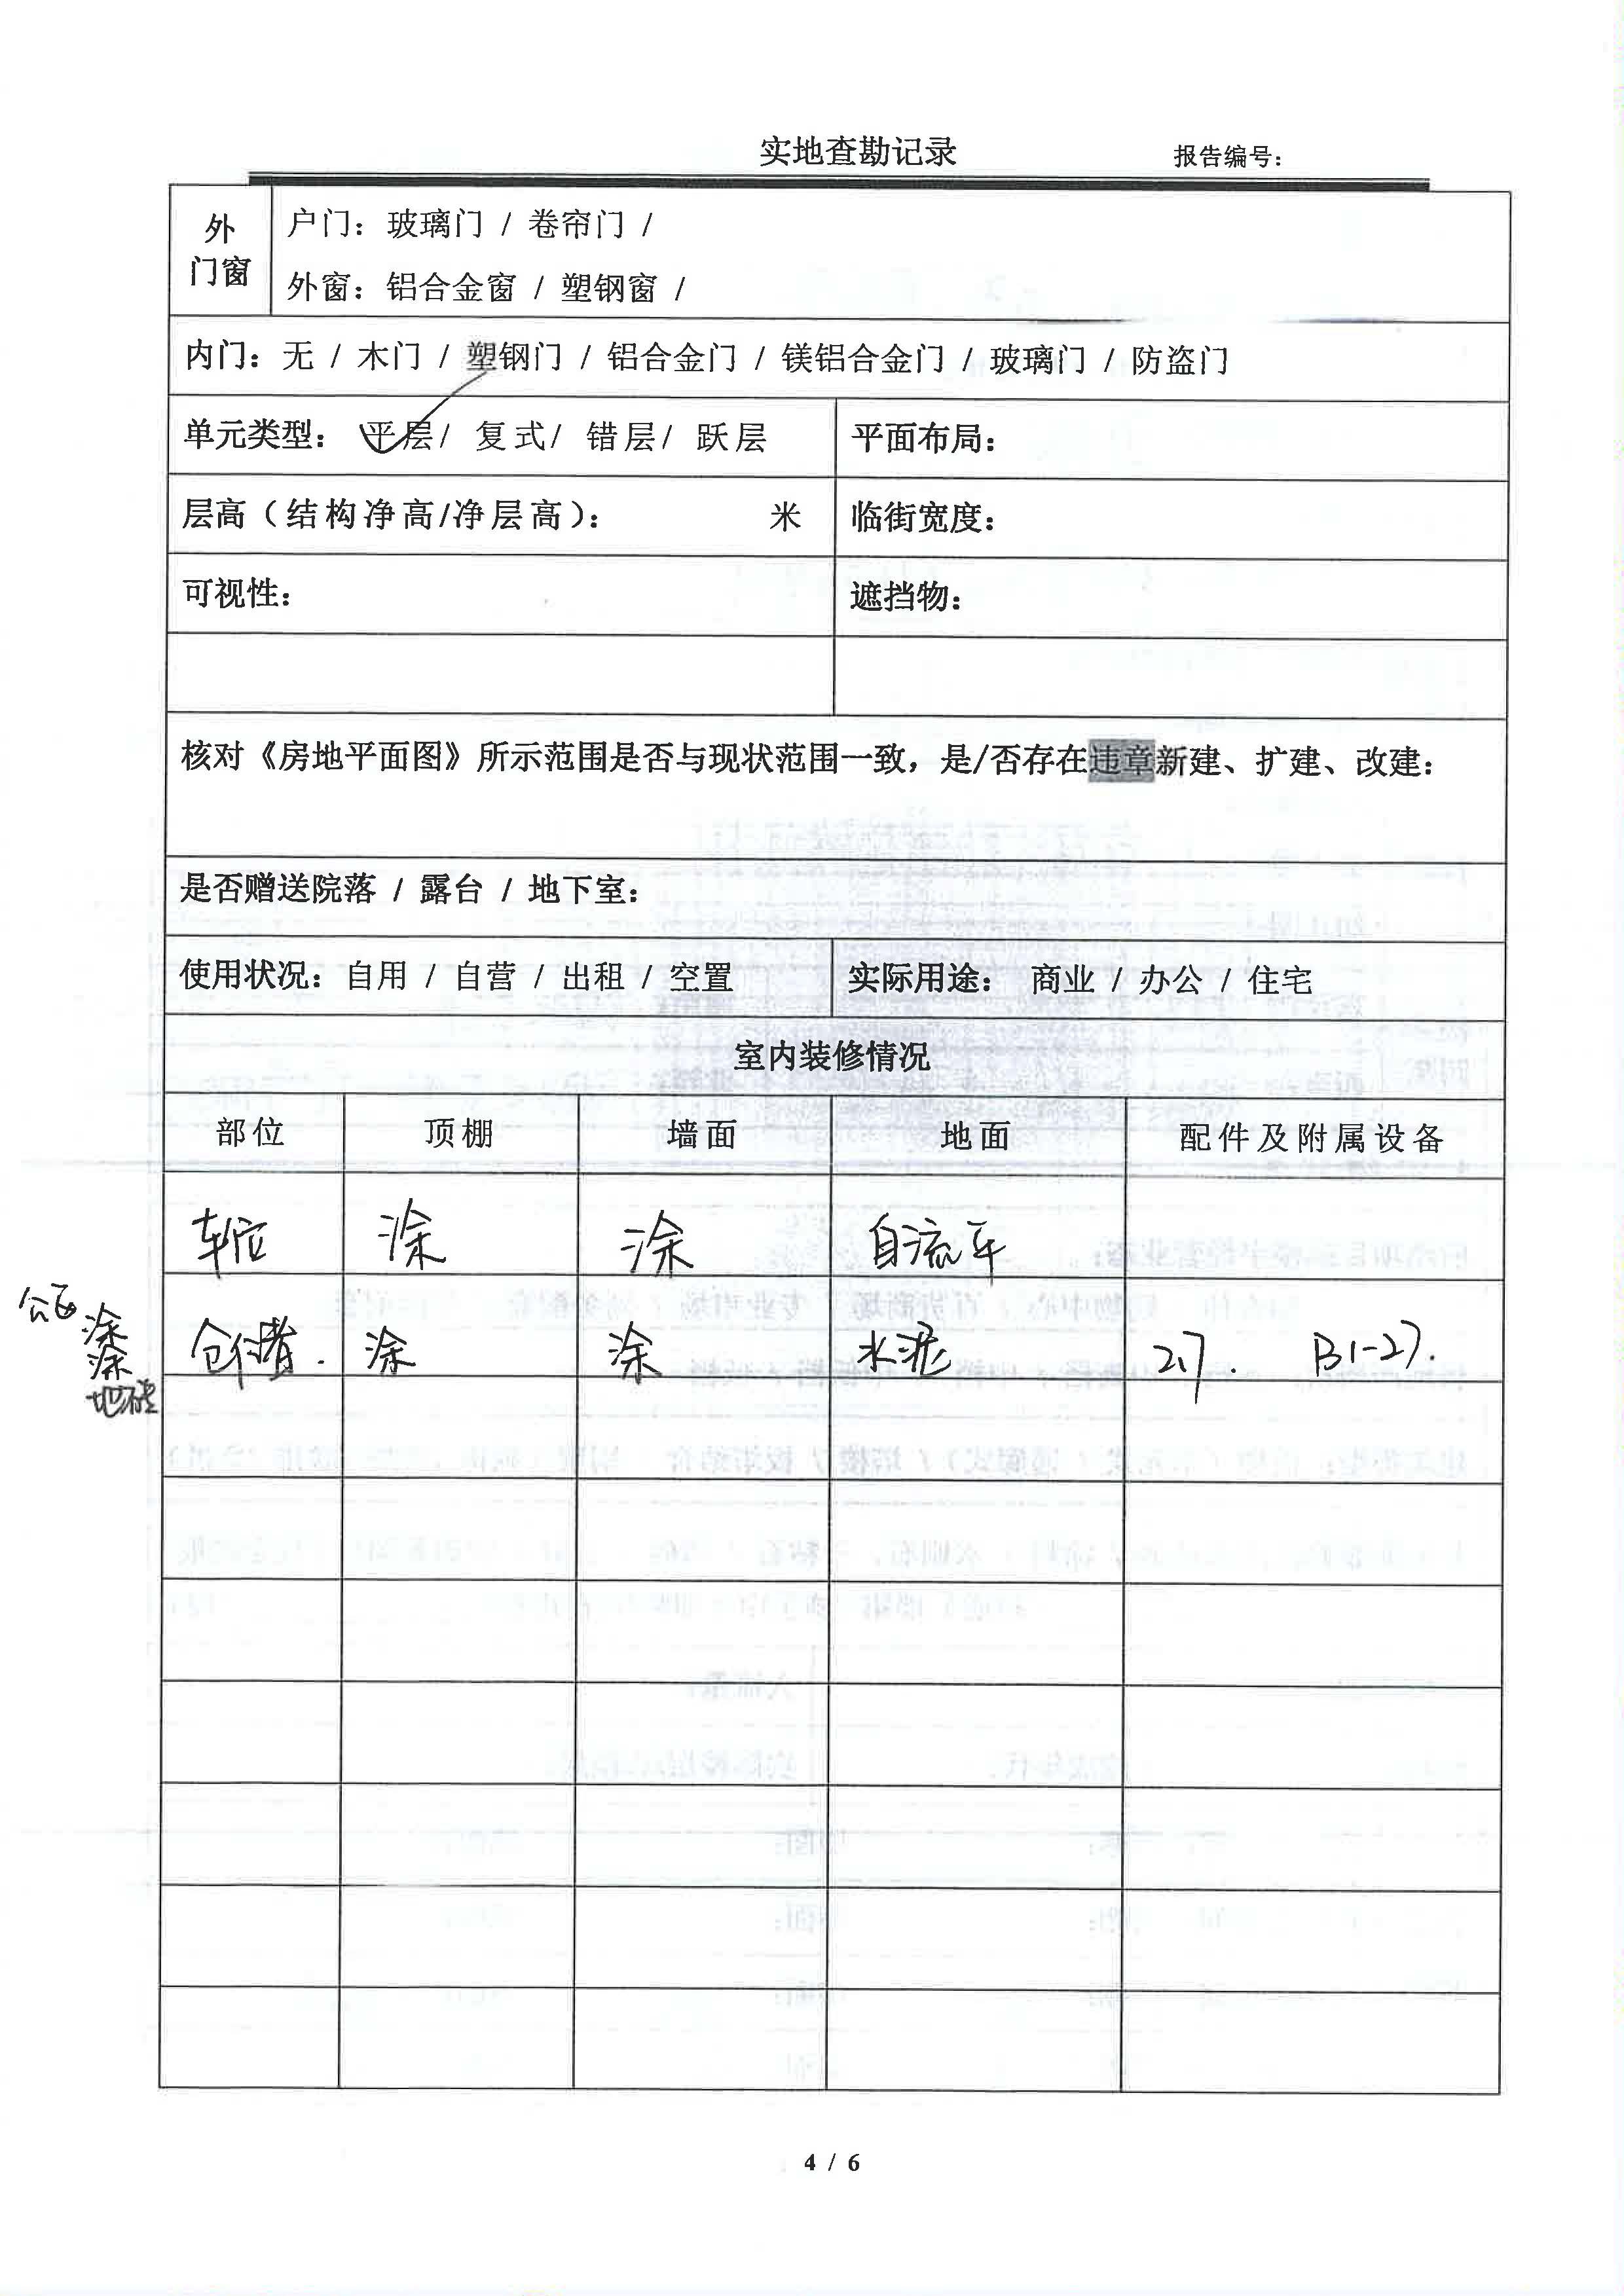 实地查勘记录 报告编号：
外门窗
户门：玻璃门 / 卷帘门 /
外窗：铝合金窗 / 塑钢窗 /
内门：无 / 木门 / 塑钢门 / 铝合金门 / 镁铝合金门 / 玻璃门 / 防盗门
单元类型： 平层/ 复式/ 错层/ 跃层 平面布局：
层高（结构净高/净层高）： 米 临街宽度：
可视性： 遮挡物：
核对《房地平面图》所示范围是否与现状范围一致，是/否存在违章新建、扩建、改建：
是否赠送院落 / 露台 / 地下室：
使用状况：自用 / 自营 / 出租 / 空置 实际用途： 商业 / 办公 / 住宅
室内装修情况
部位 顶棚 墙面 地面 配件及附属设备
车位 涂 涂 自流平
仓储. 涂 涂 水泥 2.7. B1-27.
公区
涂
涂
地砖
4 / 6